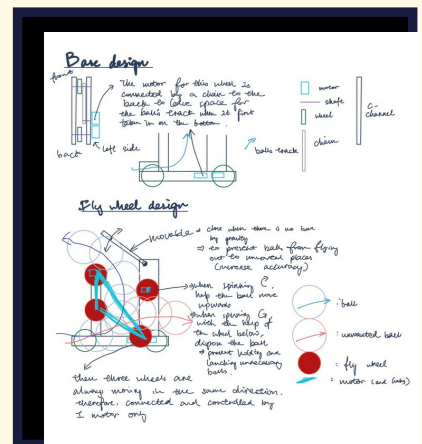 Base design
front
The motor for this wheel is
connected by a chain to the
back to leave space for
the ball's track when it first
taken in on the bottom.
back
left side
balls track
motor
shaft
wheel
chain
C-
channel
Fly wheel design
movable
close when there is no ball
by gravity
⇒ to prevent balls from flying
out to unwanted places
(increase accuracy)
when spinning
help the ball move
upwards
when spinning
with the help of
the wheel below,
dispose the ball
prevent holding and
launching unnecessary
balls.
these three wheels are
always moving in the same direction.
therefore, connected and controlled by
1 motor only
: ball
: unwanted ball
: fly wheel
: motor